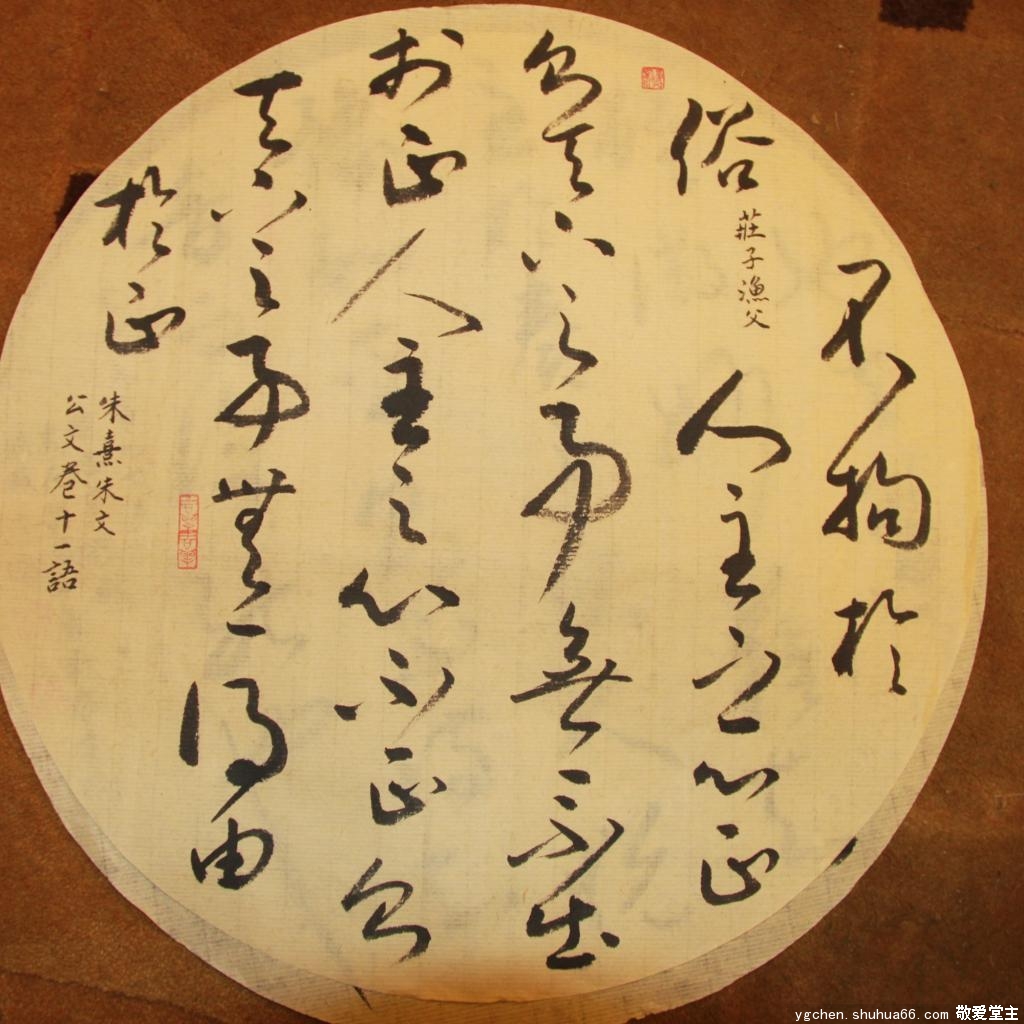 不拘於
俗
莊子漁父
人主之心正
則天下之事無一不出
於正人主之心不正則
天下之事無一得由
於正
朱熹朱文
公文卷十一語
ygchen.shuhua66.com 敬爱堂主